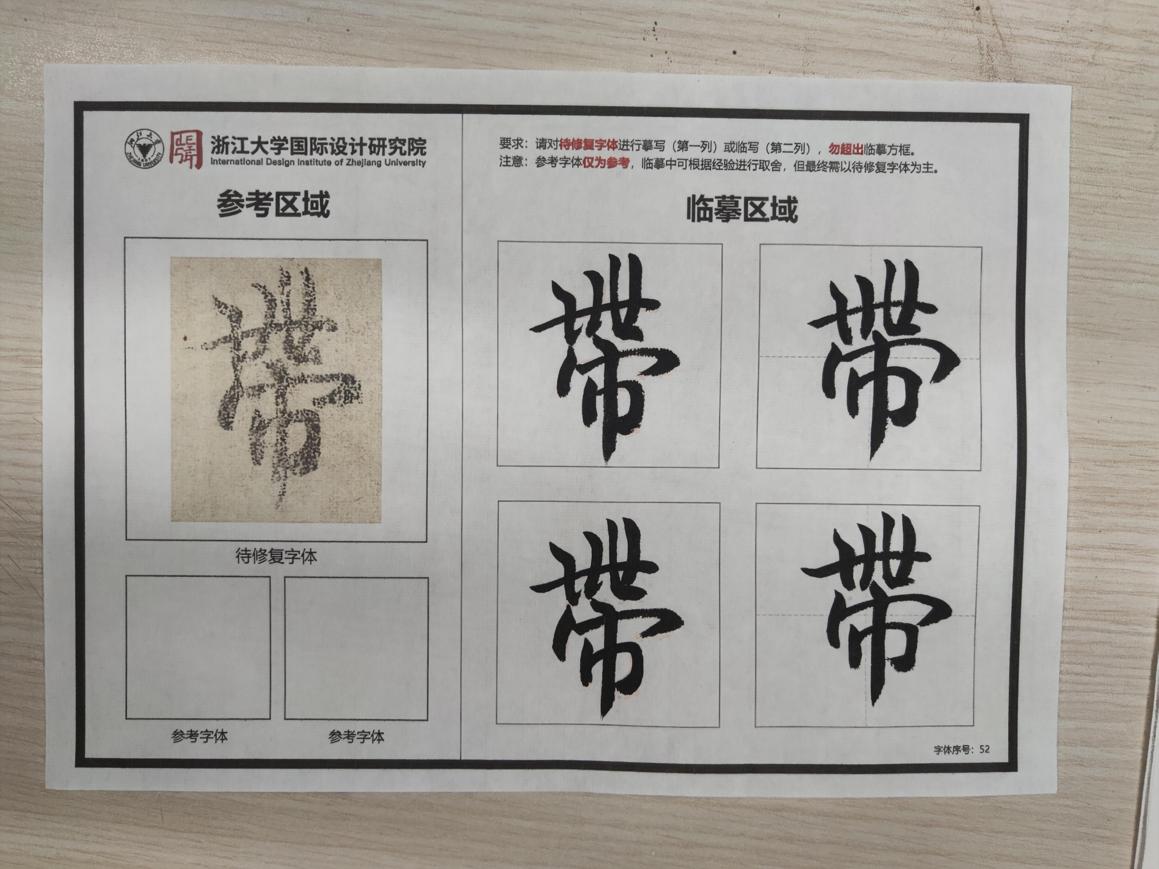 浙江大学国际设计研究院
International Design Institute of Zhejiang University
参考区域
帶
待修复字体
参考字体 参考字体
要求：请对待修复字体进行摹写（第一列）或临写（第二列），勿超出临摹方框。
注意：参考字体仅为参考，临摹中可根据经验进行取舍，但最终需以待修复字体为主。
临摹区域
帶 帶
帶 帶
字体序号：52